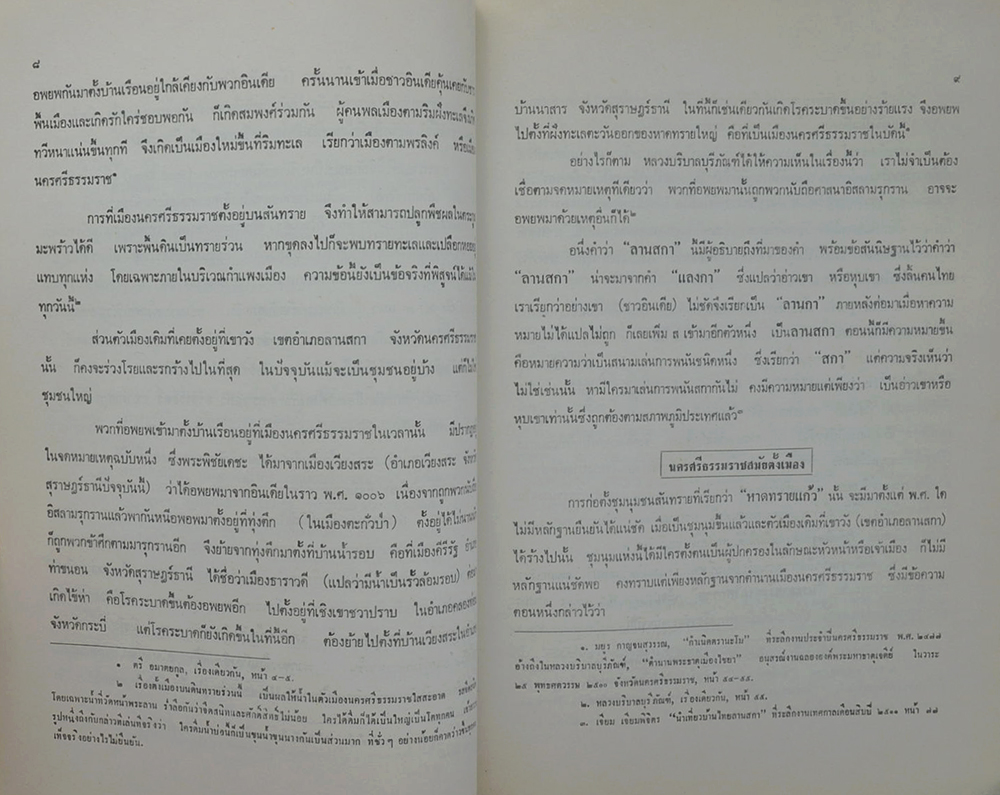 ๘
อพยพกันมาตั้งบ้านเรือนอยู่ใกล้เคียงกับพวกอินเดีย ครั้นนานเข้าเมื่อชาวอินเดียคุ้นเคยกับชาว
พื้นเมืองและเกิดรักใคร่ชอบพอกัน ก็เกิดสมพงศ์ร่วมกัน ผู้คนพลเมืองตามริมฝั่งทะเลจึงได้
ทวีหนาแน่นขึ้นทุกที จึงเกิดเป็นเมืองใหม่ขึ้นที่ริมทะเล เรียกว่าเมืองตามพรลิงค์ หรือเมือง
นครศรีธรรมราช๑
การที่เมืองนครศรีธรรมราชตั้งอยู่บนสันทราย จึงทำให้สามารถปลูกพืชผลในตระกูล
มะพร้าวได้ดี เพราะพื้นดินเป็นทรายร่วน หากขุดลงไปก็จะพบทรายทะเลและเปลือกหอยอยู่
แทบทุกแห่ง โดยเฉพาะภายในบริเวณกำแพงเมือง ความข้อนี้ยังเป็นข้อจริงที่พิสูจน์ได้แม้ใน
ทุกวันนี้๒
ส่วนตัวเมืองเดิมที่เคยตั้งอยู่ที่เขาวัง เขตอำเภอลานสกา จังหวัดนครศรีธรรมราช
นั้น ก็คงจะร่วงโรยและรกร้างไปในที่สุด ในปัจจุบันแม้จะเป็นชุมชนอยู่บ้าง แต่ก็ไม่ใช่
ชุมชนใหญ่
พวกที่อพยพเข้ามาตั้งบ้านเรือนอยู่ที่เมืองนครศรีธรรมราชในเวลานั้น มีปรากฏอยู่
ในจดหมายเหตุฉบับหนึ่ง ซึ่งพระพิชัยเดชะ ได้มาจากเมืองเวียงสระ (อำเภอเวียงสระ จังหวัด
สุราษฎร์ธานีปัจจุบันนี้) ว่าได้อพยพมาจากอินเดียในราว พ.ศ. ๑๐๐๖ เนื่องจากถูกพวก
อิสลามรุกรานแล้วพากันหนีอพยพมาตั้งอยู่ที่ทุ่งตึก (ในเมืองตะกั่วป่า) ตั้งอยู่ได้ไม่นานนัก
ก็ถูกพวกข้าศึกตามมารุกรานอีก จึงย้ายจากทุ่งตึกมาตั้งที่บ้านน้ำรอบ คือที่เมืองคีรีรัฐ อำเภอ
ท่าขนอน จังหวัดสุราษฎร์ธานี ได้ชื่อว่าเมืองธาราวดี (แปลว่ามีน้ำเป็นรั้วล้อมรอบ) ต่อมา
เกิดไข้ห่า คือโรคระบาดขึ้นต้องอพยพอีก ไปตั้งอยู่ที่เชิงเขาชวาปราบ ในอำเภอคลองท่อม
จังหวัดกระบี่ แต่โรคระบาดก็ยังเกิดขึ้นในที่นี้อีก ต้องย้ายไปตั้งที่บ้านเวียงสระในอำเภอ
๑ ตรี อมาตยกุล, เรื่องเดียวกัน, หน้า ๔-๕.
๒ เรื่องตั้งเมืองบนดินทรายร่วนนี้ เป็นผลให้น้ำในตัวเมืองนครศรีธรรมราชใสสะอาด รสจืดสนิท
โดยเฉพาะน้ำที่วัดหน้าพระลาน ร่ำลือกันว่าจืดสนิทและศักดิ์สิทธิ์ไม่น้อย ใครได้ดื่มก็ได้เป็นใหญ่เป็นโตทุกคน
รูปหนึ่งถึงกับกล่าวติดเล่นที่จริงว่า ใครดื่มน้ำบ่อนี้ก็เป็นขุนน้ำขุนนางกันเป็นส่วนมาก ที่ชั่ว ๆ อย่างน้อยก็คาดว่า
เท็จจริงอย่างไรไม่ยืนยัน.
๙
บ้านนาสาร จังหวัดสุราษฎร์ธานี ในที่นี้ก็เช่นเดียวกันเกิดโรคระบาดขึ้นอย่างร้ายแรง จึงอพยพ
ไปตั้งที่ฝั่งทะเลตะวันออกของหาดทรายใหญ่ คือที่เป็นเมืองนครศรีธรรมราชในบัดนี้๑
อย่างไรก็ตาม หลวงบริบาลบุรีภัณฑ์ได้ให้ความเห็นในเรื่องนี้ว่า เราไม่จำเป็นต้อง
เชื่อตามจดหมายเหตุที่เดียวว่า พวกที่อพยพมานั้นถูกพวกนับถือศาสนาอิสลามรุกราน อาจจะ
อพยพมาด้วยเหตุอื่นก็ได้๒
อนึ่งคำว่า “ลานสกา” นี้มีผู้อธิบายถึงที่มาของคำ พร้อมข้อสันนิษฐานไว้ว่าคำว่า
“ลานสกา” น่าจะมาจากคำ “แลงกา” ซึ่งแปลว่าอ่าวเขา หรือหุบเขา ซึ่งลิ้นคนไทย
เราเรียกว่าอย่างเขา (ชาวอินเดีย) ไม่ชัดจึงเรียกเป็น “ลานกา” ภายหลังต่อมาเมื่อหาความ
หมายไม่ได้แปลไม่ถูก ก็เลยเพิ่ม ส เข้ามาอีกตัวหนึ่ง เป็นลานสกา ตอนนี้ก็มีความหมายขึ้น
คือหมายความว่าเป็นสนามเล่นการพนันชนิดหนึ่ง ซึ่งเรียกว่า “สกา” แต่ความจริงเห็นว่า
ไม่ใช่เช่นนั้น หามีใครมาเล่นการพนันสกากันไม่ คงมีความหมายแต่เพียงว่า เป็นอ่าวเขาหรือ
หุบเขาเท่านั้นซึ่งถูกต้องตามสภาพภูมิประเทศแล้ว๓
นครศรีธรรมราชสมัยตั้งเมือง
การก่อตั้งชุมนุมชนสันทรายที่เรียกว่า “หาดทรายแก้ว” นั้น จะมีมาตั้งแต่ พ.ศ. ใด
ไม่มีหลักฐานยืนยันได้แน่ชัด เมื่อเป็นชุมนุมขึ้นแล้วและตัวเมืองเดิมที่เขาวัง (เขตอำเภอลานสกา)
ได้ร้างไปนั้น ชุมนุมแห่งนี้ได้มีใครตั้งตนเป็นผู้ปกครองในลักษณะหัวหน้าหรือเจ้าเมือง ก็ไม่มี
หลักฐานแน่ชัดพอ คงทราบแต่เพียงหลักฐานจากตำนานเมืองนครศรีธรรมราช ซึ่งมีข้อความ
ตอนหนึ่งกล่าวไว้ว่า
๑. มยุร กาญจนสุวรรณ, “กำเนิดตรานะโม” ที่ระลึกงานประจำปีนครศรีธรรมราช พ.ศ. ๒๔๗๗
อ้างถึงในหลวงบริบาลบุรีภัณฑ์, “ตำนานพระธาตุเมืองไชยา” อนุสรณ์งานฉลององค์พระมหาธาตุเจดีย์ ในวาระ
๒๕ พุทธศตวรรษ ๒๕๐๐ จังหวัดนครศรีธรรมราช, หน้า ๕๔-๕๕.
๒. หลวงบริบาลบุรีภัณฑ์, เรื่องเดียวกัน, หน้า ๕๕.
๓. เจียม เจียมพจิตร “นำเที่ยวบ้านไทยลานสกา” ที่ระลึกงานเทศกาลเดือนสิบปี ๒๕๑๑ หน้า ๗๗